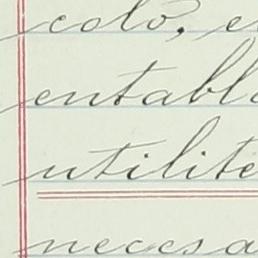 colo, e
entabl
utilite
necesa